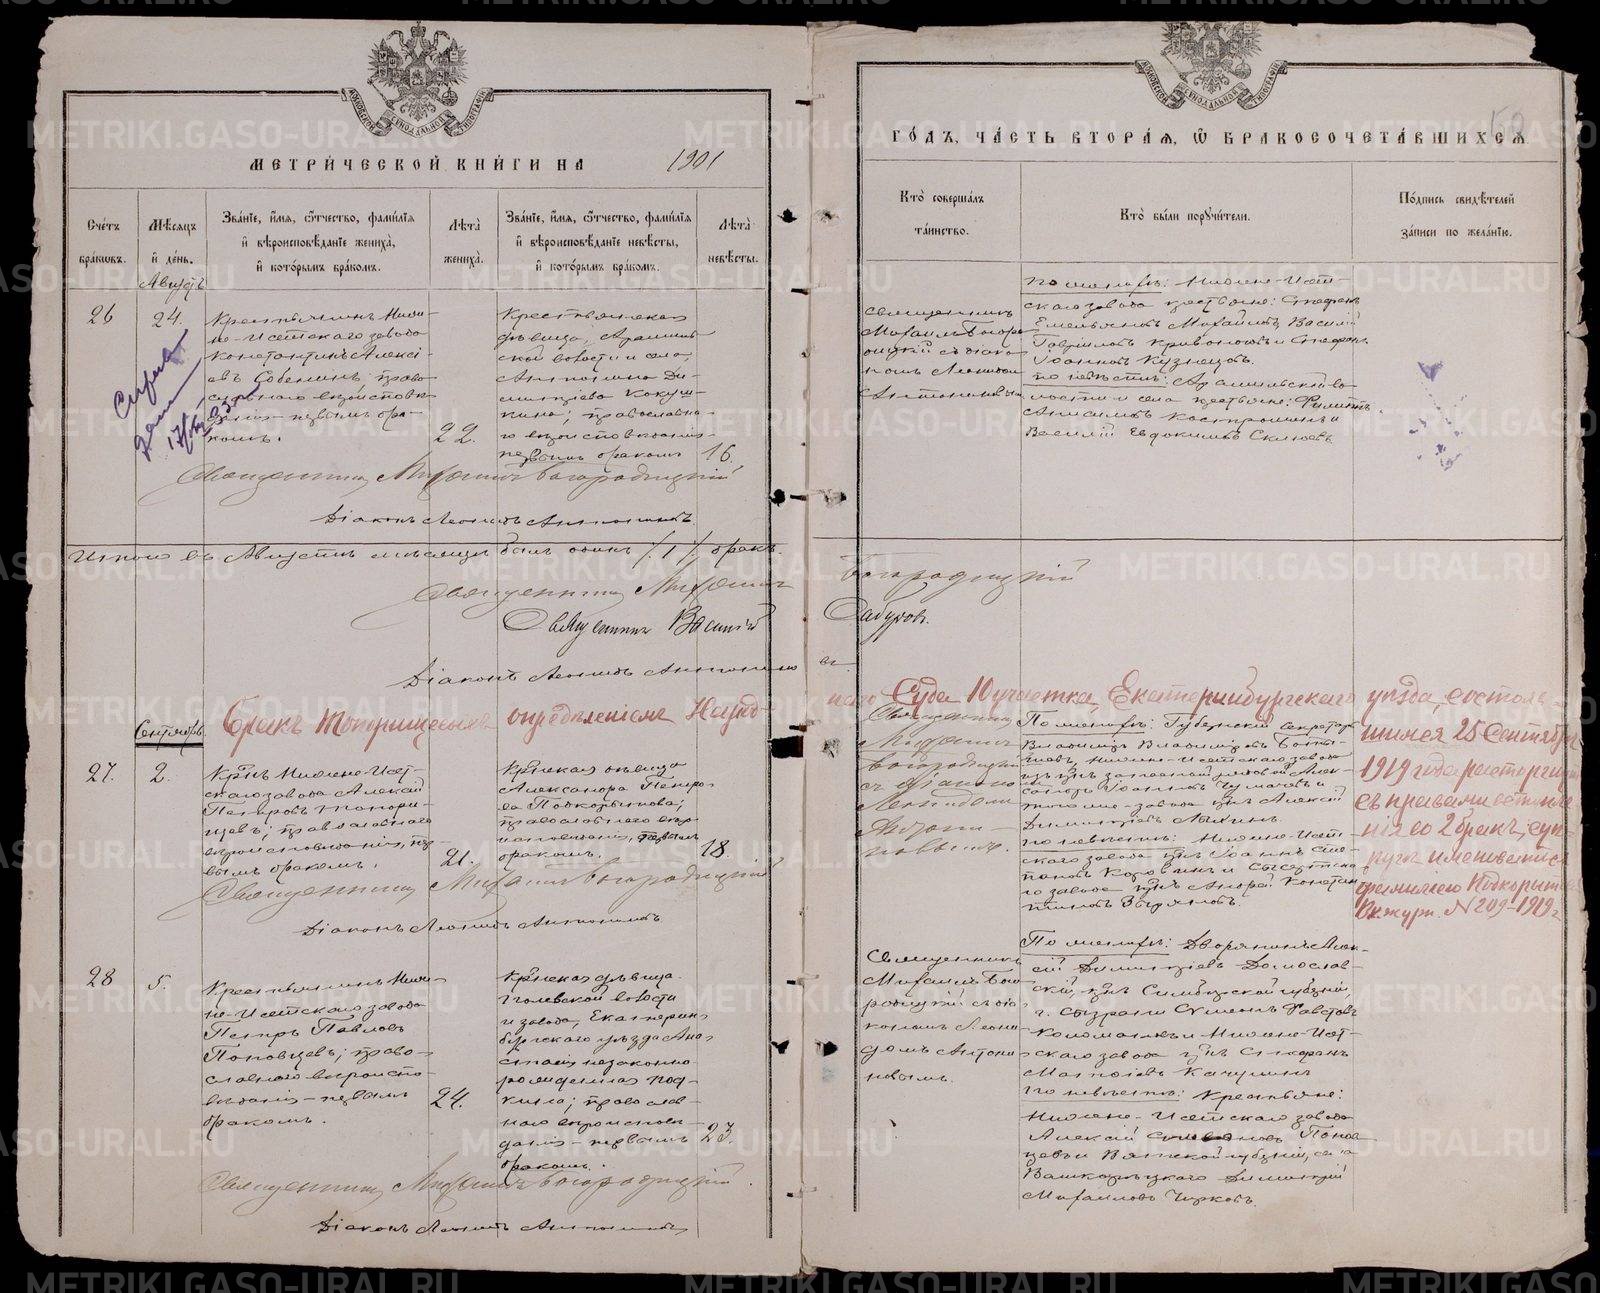 МЕТРИ́ЧЕСКОЙ КНИ́ГИ НА 1901
ГО́ДЪ, ЧА́СТЬ ВТОРА́Я, Ѿ БРАКОСОЧЕТА́ВШИХСЯ
Сче́тъ бра́кωвъ.
Мѣ́сяцъ и҆ де́нь.
Зва́нїе, и҆́мя, ѻ҆́тчество, фами́лїя и҆ вѣроисповѣ́данїе жениха̀, и҆ кото́рымъ бра́комъ.
Лѣта̀ жениха̀.
Зва́нїе, и҆́мя, ѻ҆́тчество, фами́лїя и҆ вѣроисповѣ́данїе невѣ́сты, и҆ кото́рымъ бра́комъ.
Лѣта̀ невѣ́сты.
Кто̀ соверша́лъ та́инство.
Кто̀ бы́ли порꙋчи́тели.
По́дпись свидѣ́телей за́писи по жела́нїю.
Августъ
26
24.
Крестьянинъ Ниж-
не-Исетскаго завода
Константинъ Алексі-
евъ Собенинъ, право-
славнаго вѣроисповѣ-
данія - первымъ бра-
комъ.
22.
Крестьянская
дѣвица, Арамиль-
ской волости и села,
Антонина Ди-
митріева Кокуш-
кина; православна-
го вѣроисповѣданія -
первымъ бракомъ
16.
Священникъ
Михаилъ Богоро-
дицкій съ діако-
номъ Леонидом
Антониновым
По женихѣ: Нижне-Исет-
скаго завода крестьяне: Стефанъ
Емельяновъ Михайловъ, Василій
Гавриловъ Кривоноговъ и Стефанъ
Іоанновъ Кузнецовъ.
по невѣстѣ: Арамильской во-
лости и села крестьяне: Филиппъ
Анисимовъ Костромин и
Василій Евдокимовъ
Священникъ Михаилъ Богородицкій
Діаконъ Леонидъ Антониновъ
Итого въ Августѣ мѣсяцѣ былъ одинъ /1/ бракъ.
Священникъ Михаилъ Богородицкій
Священникъ Василій Сабуров.
Діаконъ Леонидъ Антониновъ
Сентябрь.
Бракъ Топорищевыхъ опредѣленіемъ Народ-
наго Суда 10 участка, Екатеринбургскаго уѣзда, состояв-
шимся 25 Сентября
1919 года расторгнут
съ правами вступле-
нія во 2 бракъ; суп-
руга именоваться
фамилію Подкорытова
Вх. журн. № 209-1919 г.
27.
2.
Кр҃нъ Нижне-Исет-
скаго завода Алексѣй
Петровъ Топори-
щевъ; православнаго
вѣроисповѣданія, пер-
вымъ бракомъ.
21.
Кр҃нская дѣвица
Александра Петро-
ва Подкорытова;
православнаго вѣро-
исповѣданія, первымъ
бракомъ.
18.
Священникъ
Михаилъ
Богородицкій
съ діаконо
Леонидомъ
Антони-
новымъ.
По женихѣ: Губернскій Секретарь
Владиміръ Владиміровъ
Нижне-Исетскаго завода
Іоанновъ
завода кр҃нъ Алексѣй
Димитріевъ
по невѣстѣ: Нижне-Исет-
скаго завода кр҃нъ Іоаннъ Сте-
пановъ Коровинъ и Сысертска-
го завода кр҃нъ Андрей Констан-
тиновъ
Священникъ Михаилъ Богородицкій
Діаконъ Леонидъ Антониновъ
28
5.
Крестьянинъ Ниж-
не-Исетскаго завода
Петръ Павловъ
Поповцевъ; право-
славнаго вѣроиспо-
вѣданія - первымъ
бракомъ.
24.
Кр҃нская дѣвица
волости
и завода, Екатерин-
бургскаго уѣзда Ана-
стасія незаконно-
рожденная
православ-
наго вѣроисповѣ-
данія - первымъ
бракомъ.
23.
Священникъ
Михаилъ Бого-
родицкій съ діа-
кономъ Леони-
домъ Антони-
новымъ.
По женихѣ: Дворянинъ Алек-
сѣй Димитріевъ Домослав-
скій, кр҃нъ Симбирской губерніи,
г. Сызрани
и Нижне-Исет-
скаго завода кр҃нъ Стефанъ
по невѣстѣ: Крестьяне:
Нижне-Исетскаго завода
Алексѣй Поповцевъ
и Вятской губерніи, села
Димитрій
Михайловъ Чирковъ.
Священникъ Михаилъ Богородицкій.
Діаконъ Леонидъ Антониновъ
METRIKI.GASO-URAL.RU